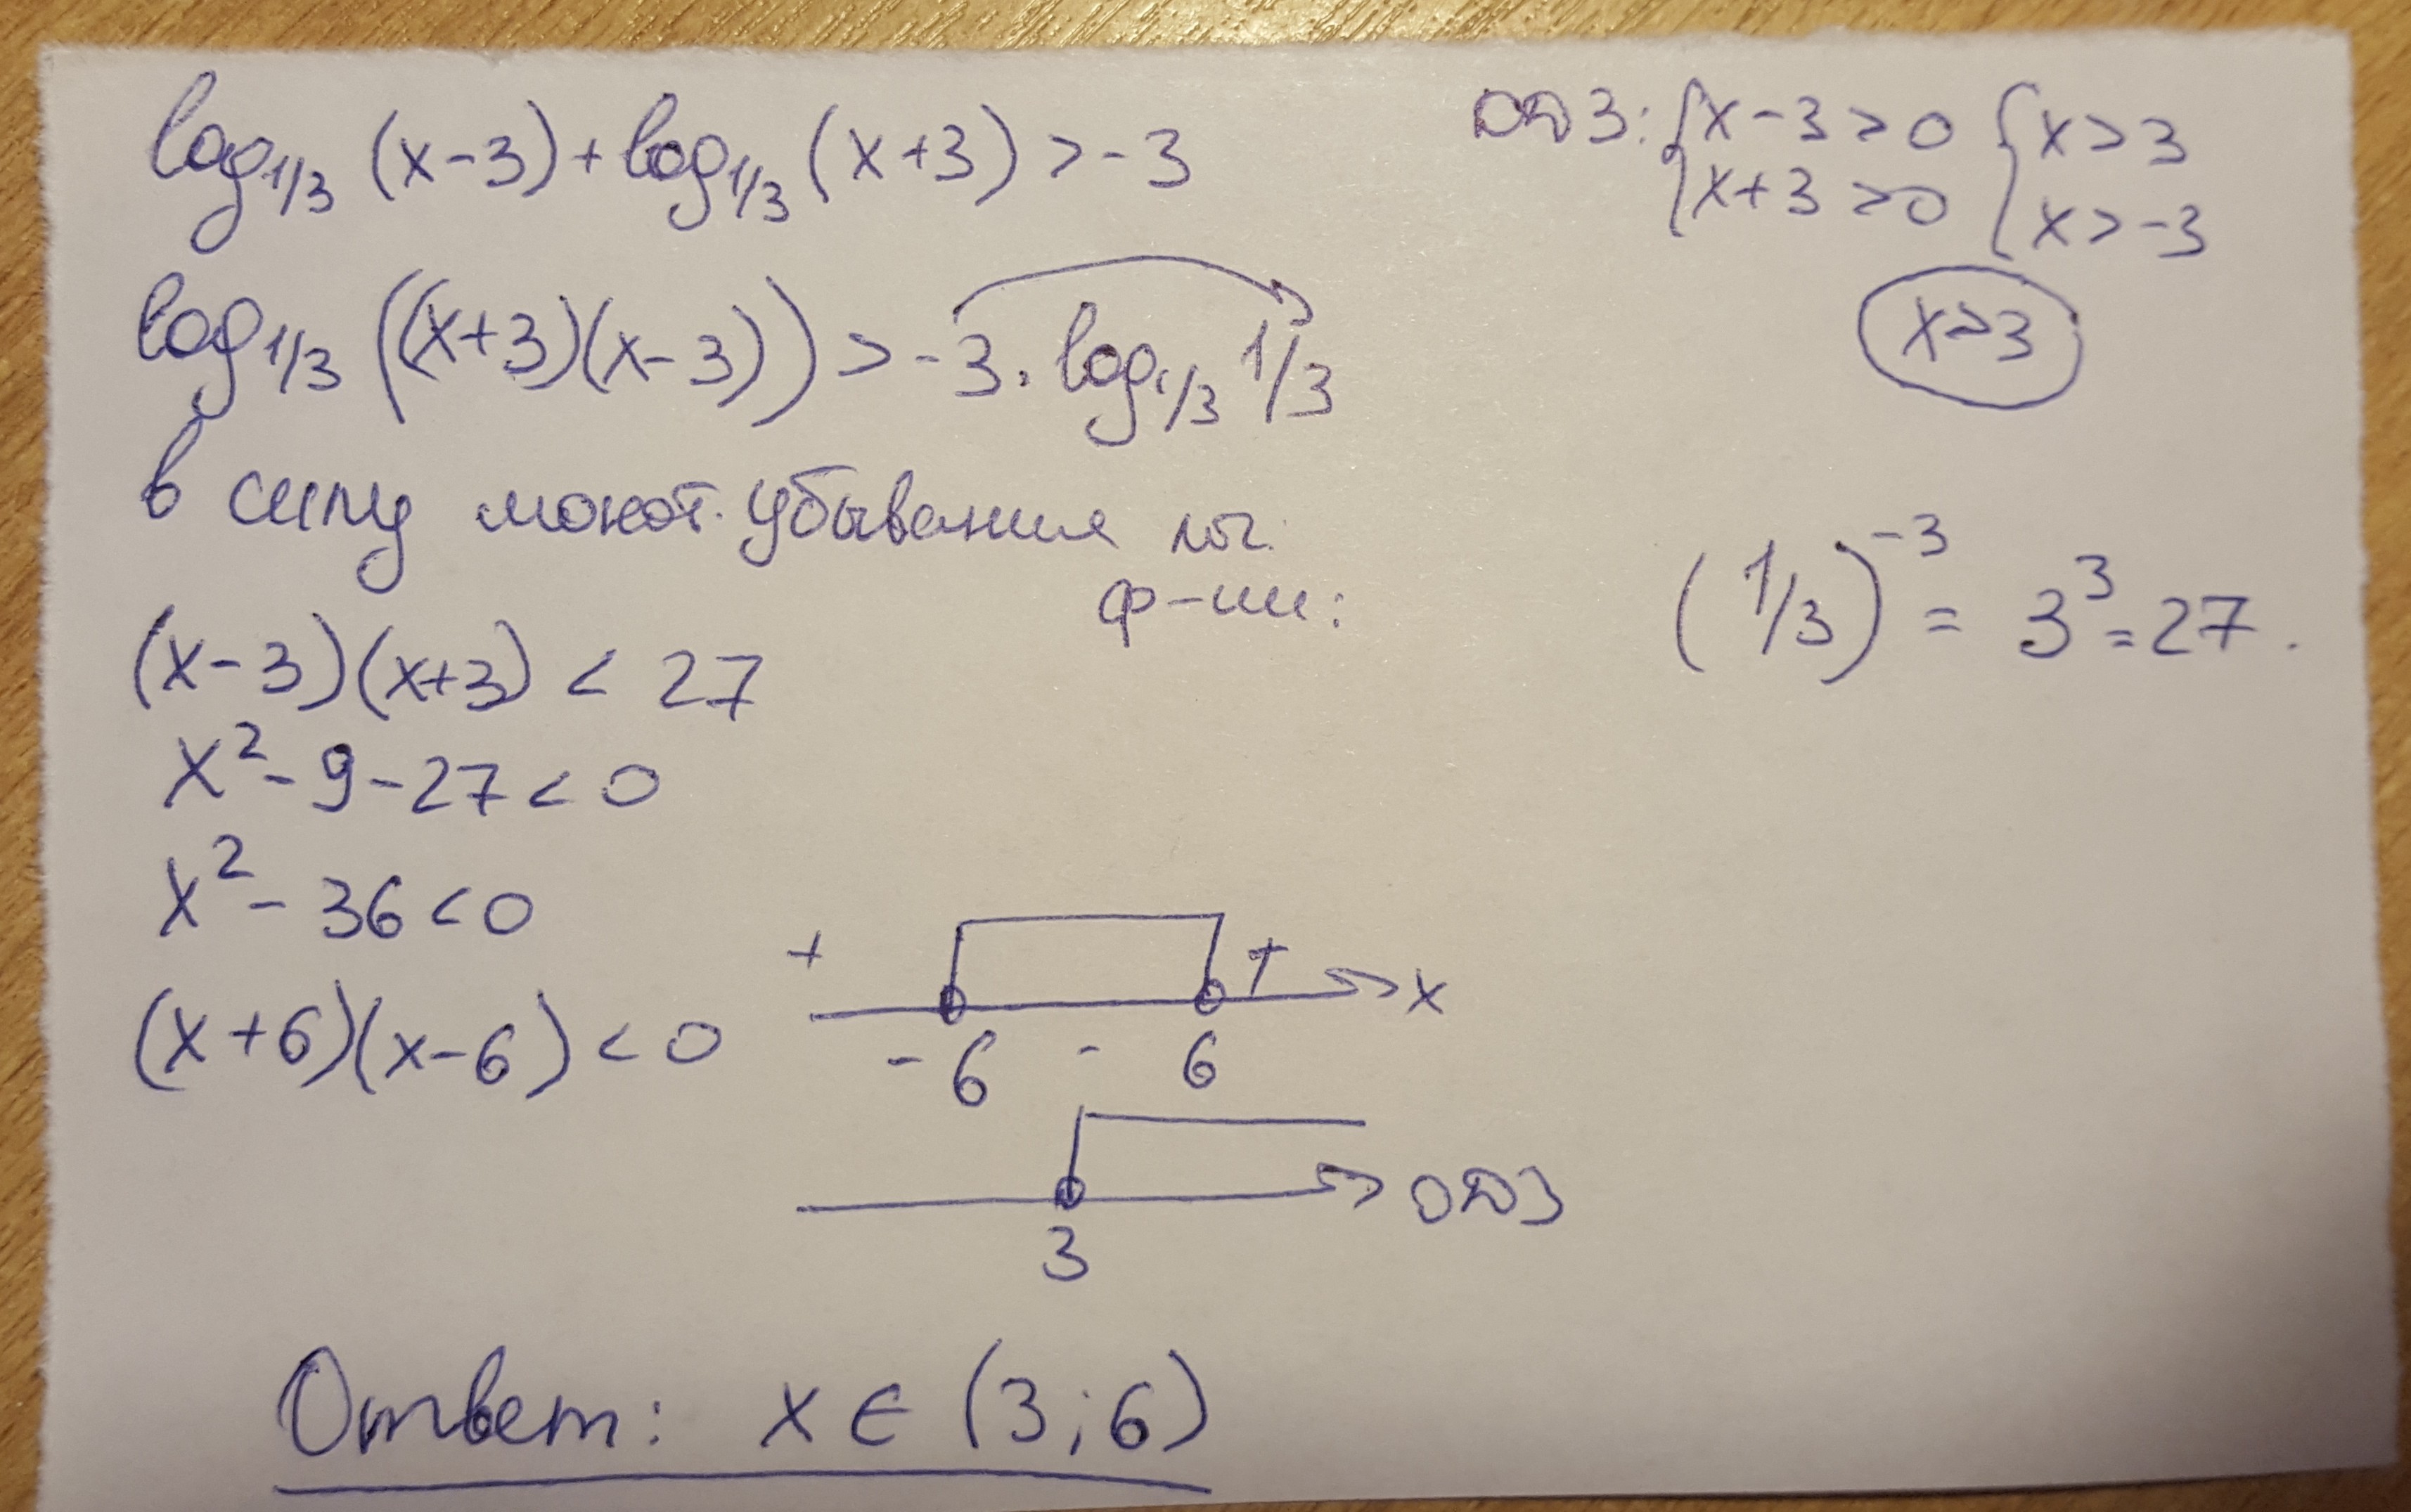 log₁/₃ (x-3)+log₁/₃ (x+3) >-3
ОДЗ: {x-3>0 {x>3
{x+3>0 {x>-3
x>3
log₁/₃ ((x+3)(x-3)) > -3 · log₁/₃ 1/3
в силу монот. убывания лог.
ф-ии:
(1/3)⁻³ = 3³ = 27.
(x-3)(x+3) < 27
x² - 9 - 27 < 0
x² - 36 < 0
(x+6)(x-6) < 0
+ + x
-6 - 6
ОДЗ
3
Ответ: x ∈ (3;6)